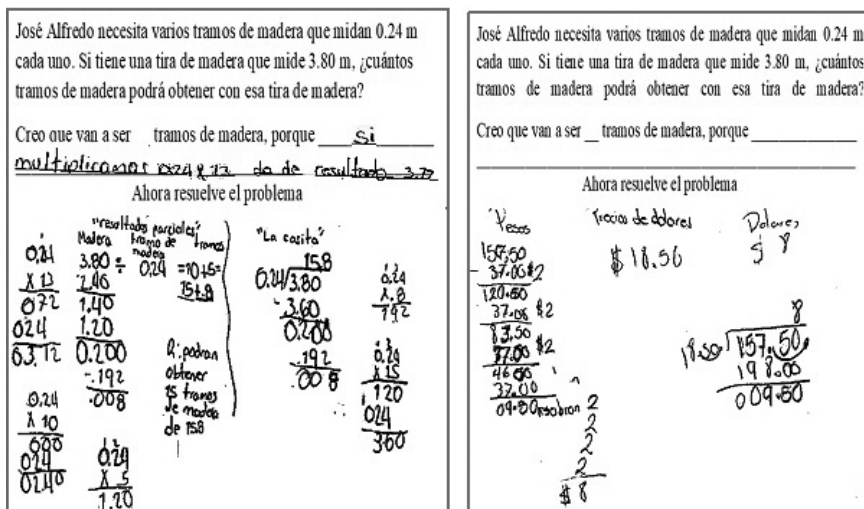 José Alfredo necesita varios tramos de madera que midan 0.24 m
cada uno. Si tiene una tira de madera que mide 3.80 m, ¿cuántos
tramos de madera podrá obtener con esa tira de madera?
Creo que van a ser tramos de madera, porque si
multiplicamos da de resultado
Ahora resuelve el problema
"resultados parciales"
Madera tramo de madera tramos
3.80 ÷ 0.24 =10+5=
1.40
1.20
0.200
-.192
.008
R: podran
obtener
15 tramos
de madera
de 158
072
024
0.24
X 10
000
024
0240
0.24
X 5
1.20
"La casita"
15.8
0.24/3.80
-3.60
0.200
.192
.008
0.24
X.8
192
0.24
X 15
120
024
360
José Alfredo necesita varios tramos de madera que midan 0.24 m
cada uno. Si tiene una tira de madera que mide 3.80 m, ¿cuántos
tramos de madera podrá obtener con esa tira de madera?
Creo que van a ser __ tramos de madera, porque
Ahora resuelve el problema
Pesos
157.50
- 37.00 $2
120.50
37.00 $2
83.50
37.00 $2
46.50
37.00
09.50
2
2
2
2
$ 8
Precios de dolares
$ 18.50
Dolares
$ 8
8
18.50
157.50
009.50